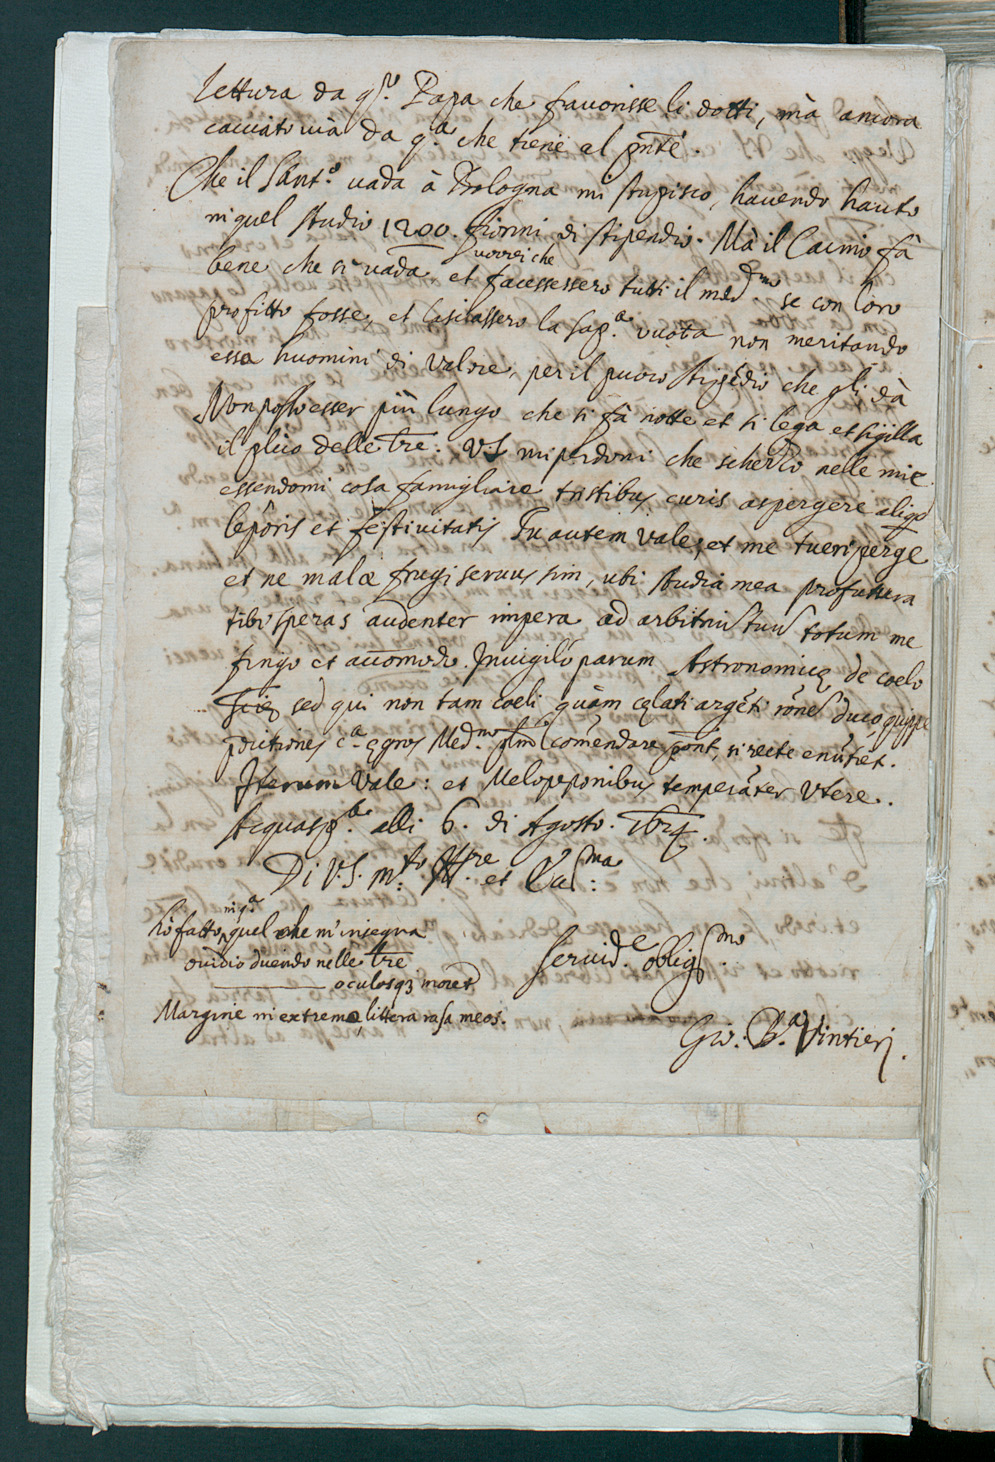 lettura da q.^o Papa che favorisse li dotti, mà ancora
cacciato via da q.^a che tiene al pnte.
Che il Sant.^o vada à Bologna mi stupisco, havendo hauto
in quel studio 1200. fiorini di stipendio. Mà il Caimo fà
bene che si vada et vorrei che facessessero tutti il med.^mo se con loro
profitto fosse, et lasciassero la Sap.^a vuota non meritando
essa huomini di valore, per il puoco stipédio che gli dà
Non posso esser più lungo che si fà notte et si lega et sigilla
il plico delle tre. V.S. mi perdoni che scherzo nelle mie
essendomi cosa famigliare tristibus curis aspergere aliqd
leporis et festivitatis Tu autem vale, et me tueri perge
et ne malæ frugi servus sim, ubi studia mea profutura
tibi speras audenter impera ad arbitriū tuū totum me
fingo et accomodo. Invigilo parum Astronomicę de coelo
sed qui non tam coeli quàm cęlati argéti rōnes duco, quippe
c.^a ęgros Med.^mo comendare pont, si recte enutriét.
Iterum Vale: et Melopeponibus temperáter Utere.
Acquasp.^ta alli 6. di Agosto. 1624.
Di V.S. m.^to Ill.^re et Ecc.^ma
Hò fatto in q.^a quel che m'insegna
Ovidio dicendo nelle tre
oculosq; moret
Margine in extremo littera rasa meos.
Servid.^e oblig.^mo
Gio: B.^a Vintieri.